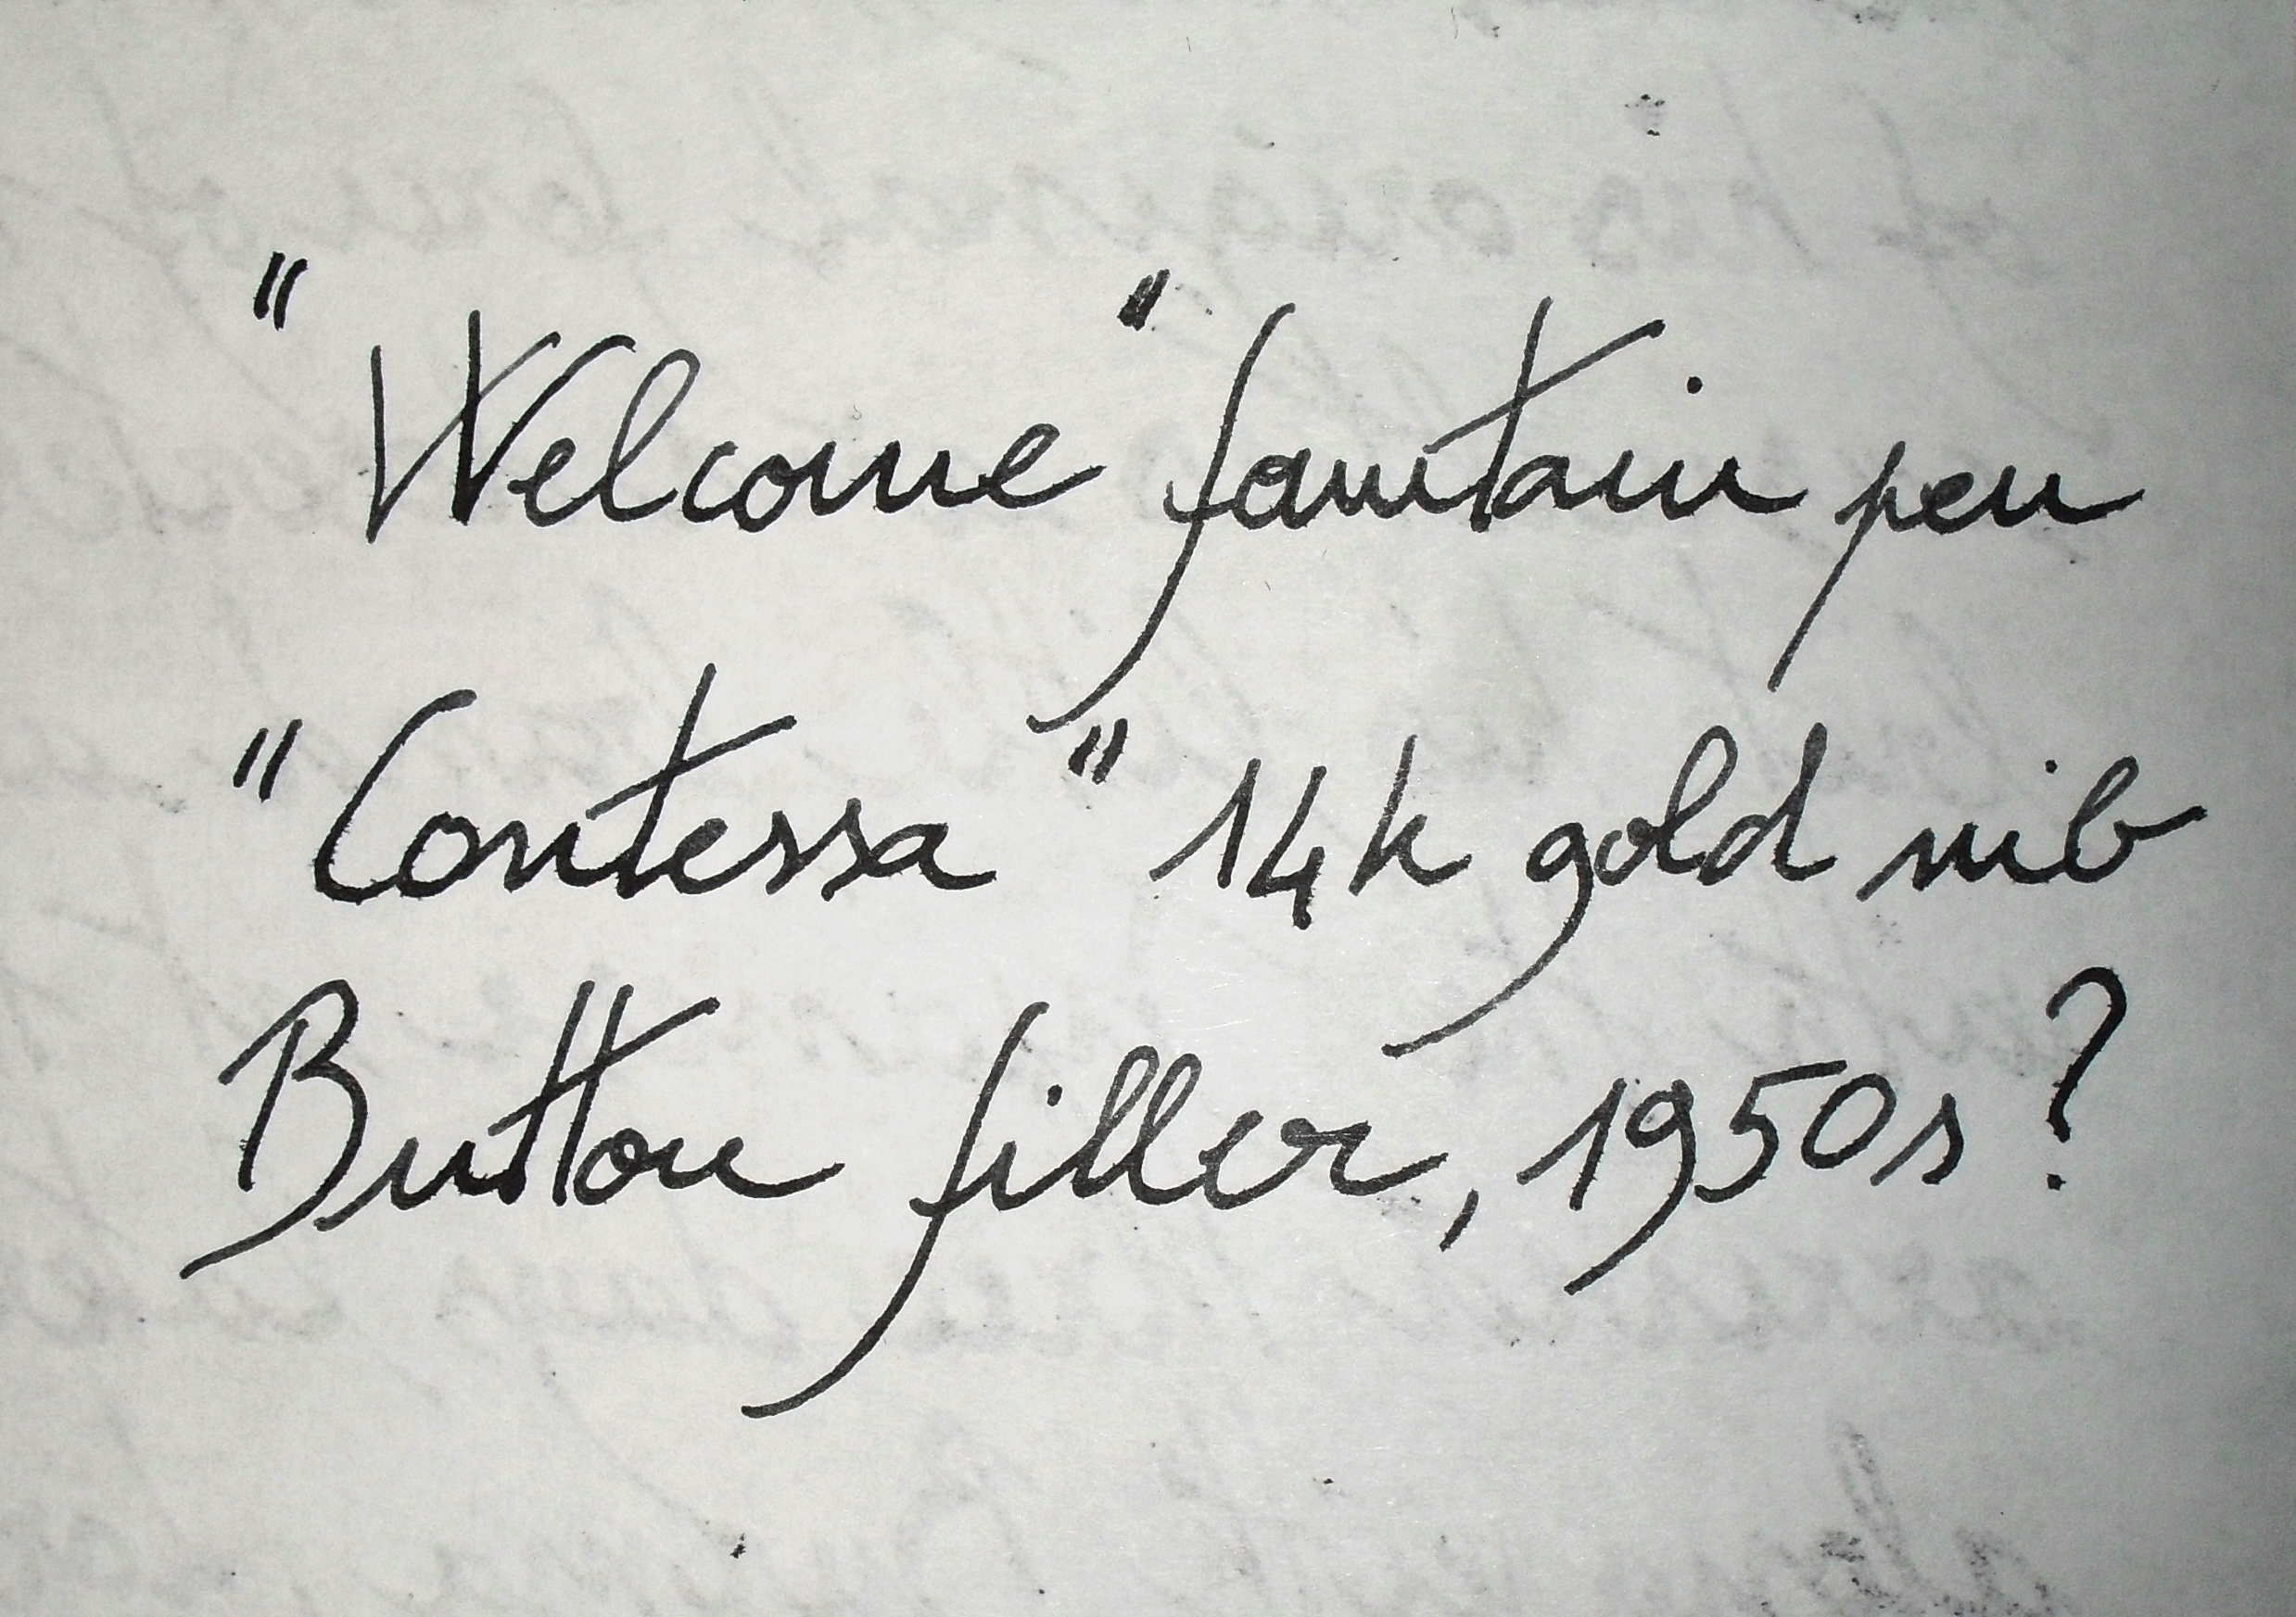 "Welcome" fountain pen
"Contessa" 14k gold nib
Button filler, 1950s?